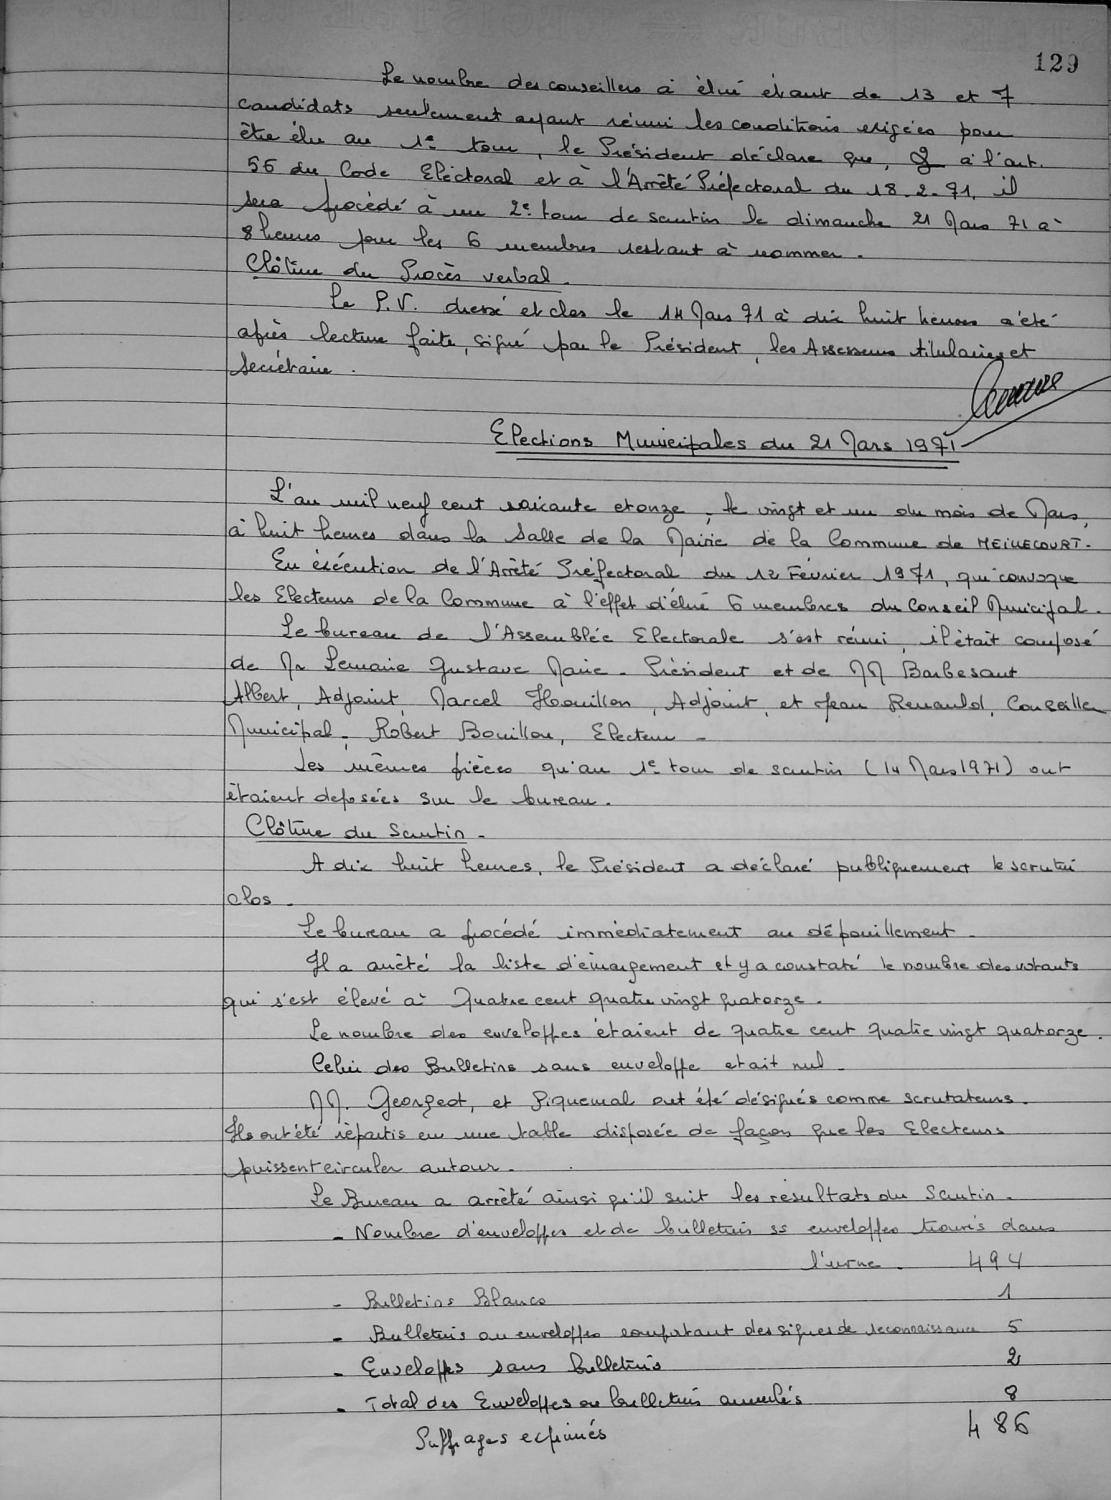 129
Le nombre des conseillers à élire étant de 13 et 7
candidats seulement ayant réuni les conditions exigées pour
être élu au 1e tour, le Président déclare que, à l'art.
55 du Code Electoral et à l'Arrêté Préfectoral du 18.2.71, il
sera procédé à un 2e tour de scrutin le dimanche 21 Mars 71 à
8 heures pour les 6 membres restant à nommer.
Clôture du Procès verbal.
Le P.V. dressé et clos le 14 Mars 71 à dix huit heures a été
après lecture faite, signé par le Président, les Assesseurs titulaires et
Secrétaire.
Elections Municipales du 21 Mars 1971
L'an mil neuf cent soixante et onze, le vingt et un du mois de Mars,
à huit heures dans la Salle de la Mairie de la Commune de MEILLECOURT.
En éxécution de l'Arrêté Préfectoral du 12 Février 1971, qui convoque
les Electeurs de la Commune à l'effet d'élire 6 membres du Conseil Municipal.
Le bureau de l'Assemblée Electorale s'est réuni, il était composé
de Mr Lemaire Gustave Maire - Président et de MM Barbesant
Albert, Adjoint, Marcel Houillon, Adjoint, et Jean Renauld, Conseiller
Municipal, Robert Bouillon, Electeur -
Les mêmes pièces qu'au 1e tour de scrutin (14 Mars 1971) ont
étaient deposées sur le bureau.
Clôture du Scrutin -
A dix huit heures, le Président a déclaré publiquement le scrutin
clos -
Le bureau a procédé immédiatement au dépouillement -
Il a arrêté la liste d'émargement et y a constaté le nombre des votants
qui s'est élevé à Quatre cent quatre vingt quatorze.
Le nombre des enveloppes étaient de quatre cent quatre vingt quatorze.
Celui des Bulletins sans enveloppe etait nul -
MM. Georgeot, et Piquemal ont été désignés comme scrutateurs.
Ils ont été répartis en une table disposée de façon que les Electeurs
puissent circuler autour.
Le Bureau a arrêté ainsi qu'il suit les résultats du Scrutin -
- Nombre d'enveloppes et de bulletins ss enveloppes trouvés dans
l'urne - 494
- Bulletins Blancs 1
- Bulletins ou enveloppes comportant des signes de reconnaissance 5
- Enveloppes sans bulletins 2
- Total des Enveloppes ou bulletins annulés 8
Suffrages exprimés 486